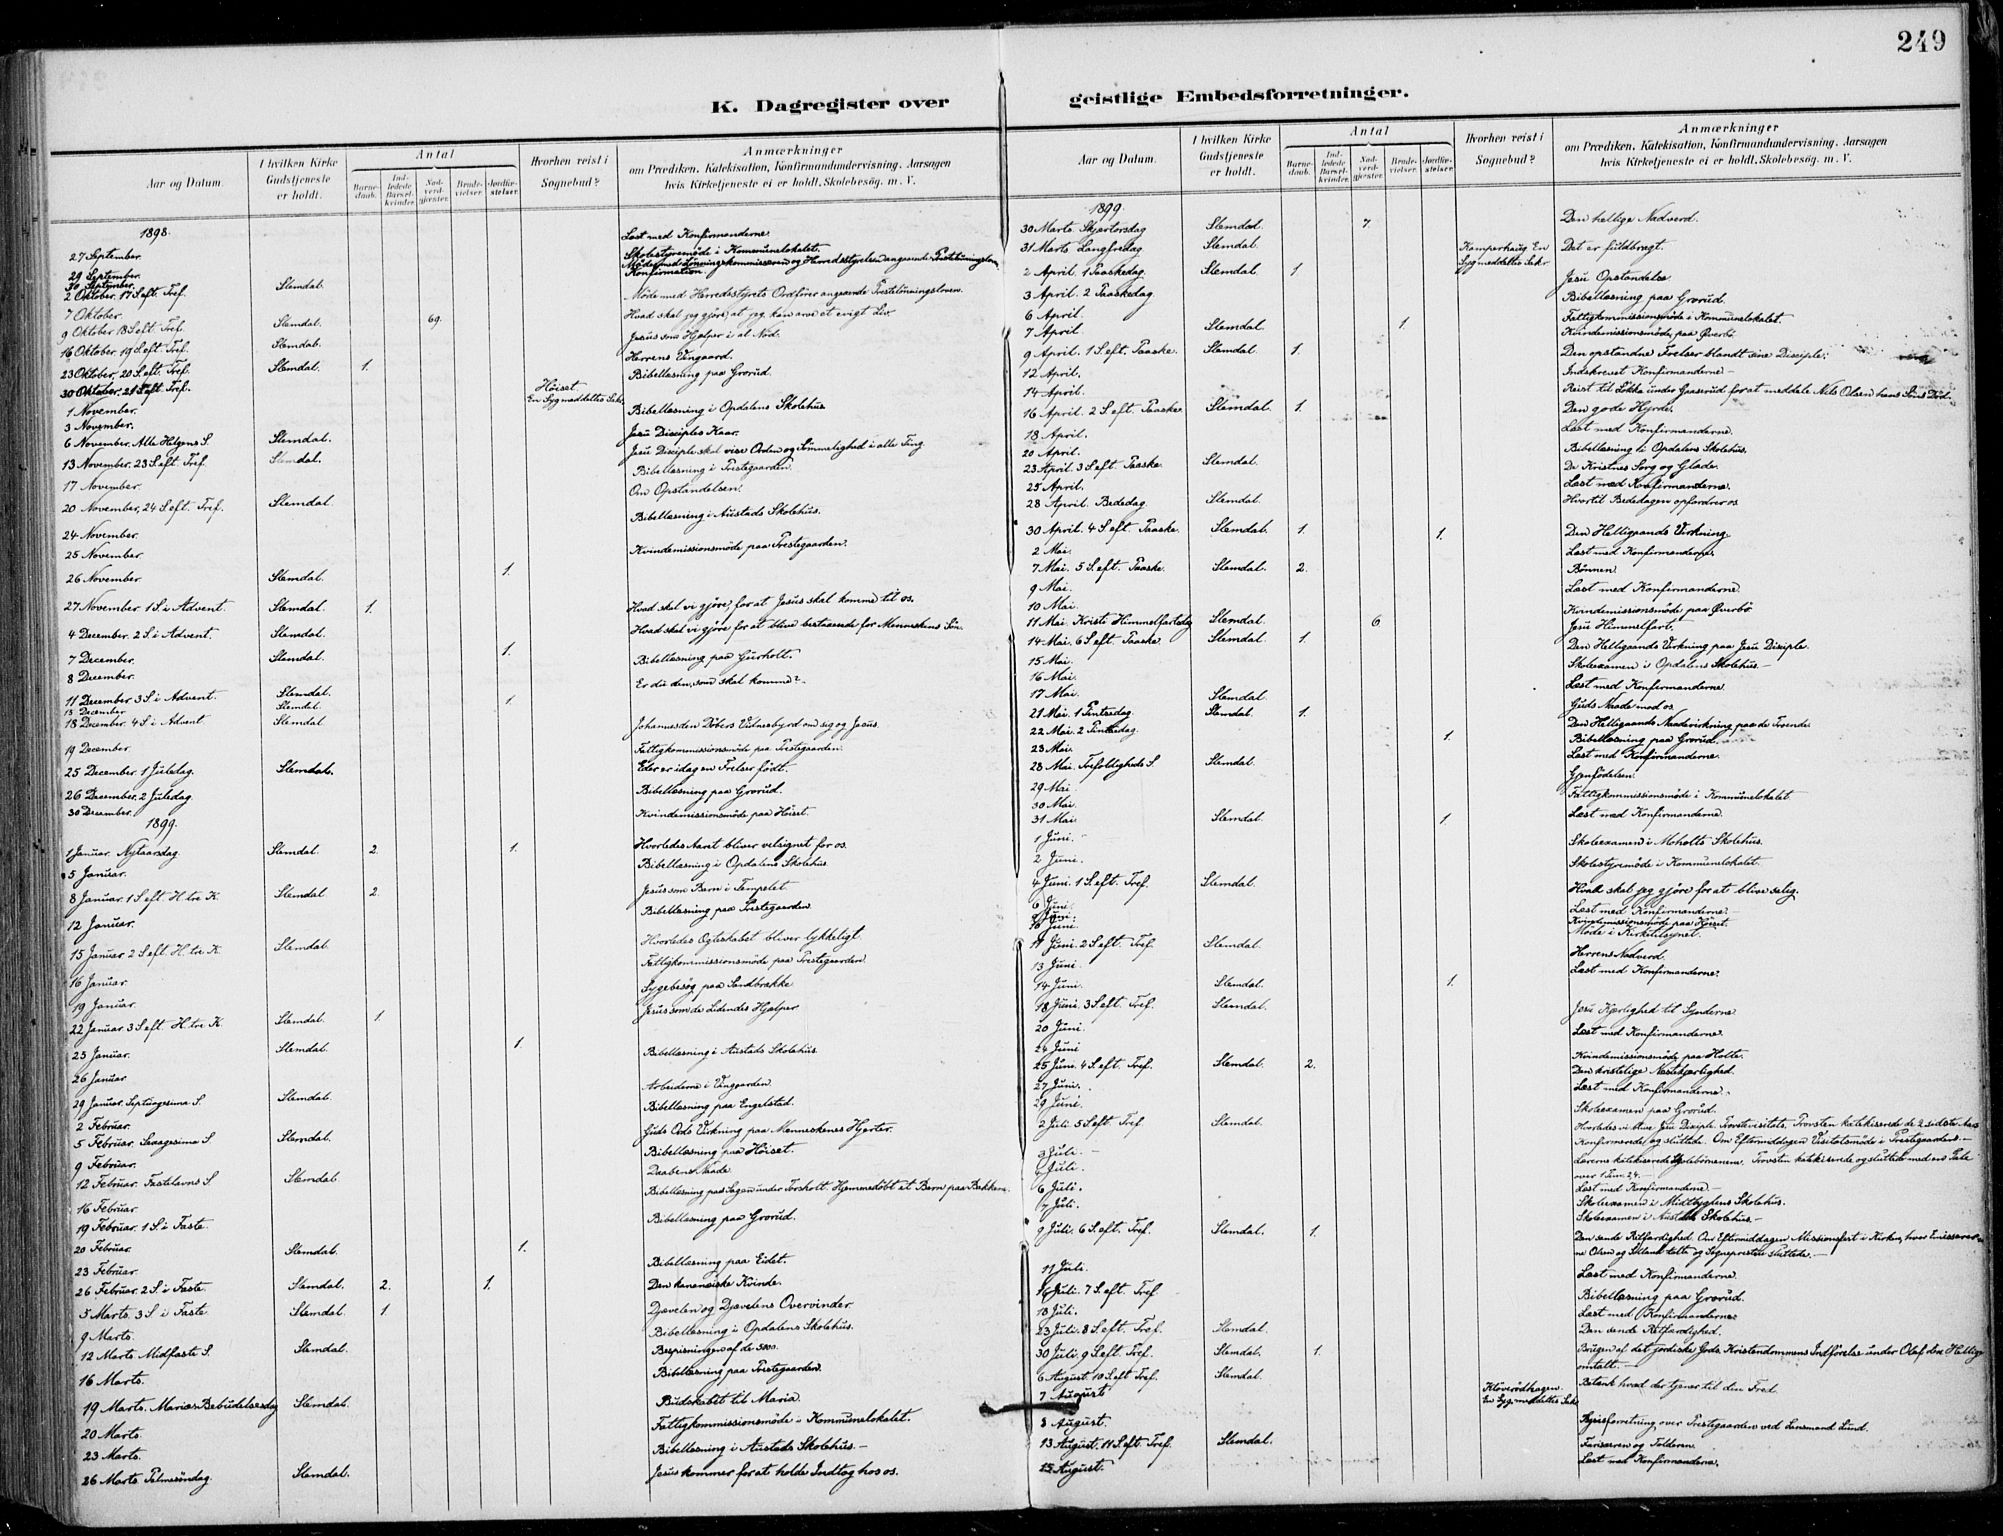 249
K. Dagregister over geistlige Embedsforretninger.
Aar og Datum.
I hvilken Kirke Gudstjeneste er holdt.
Antal
Barne-daab.
Ind-ledede Barsel-kvinder.
Nad-verd-gjæster.
Brude-vielser.
Jordfæ-stelser.
Hvorhen reist i Sognebud?
Anmærkninger
om Prædiken. Katekisation, Konfirmandundervisning. Aarsagen
hvis Kirketjeneste ei er holdt. Skolebesög. m. V.
1898.
27 September. Læst med Konfirmanderne.
29 September. Skolestyremöde i Kommunelokalet.
30 September.
2 Oktober. 17 S. eft. Tref. Slemdal. Konfirmation.
7 Oktober. Möde med Herredsstyrets Ordförer angaaende Prestelönningsloven.
9 Oktober 18 S. eft. Tref. Slemdal. 69. Hvad skal jeg gjöre, at jeg kan arve et evigt Liv.
16 Oktober. 19 S. eft. Tref. Slemdal. Jesus som Hjælper i al Nöd.
23 Oktober. 20 S. eft. Tref. Slemdal. 1. Herrens Vingaard.
30 Oktober. 21 S. eft. Tref. Bibellæsning paa Grorud.
1 November. Höiset. En Syg meddeltes Sakr.
3 November. Bibellæsning i Opdalens Skolehus
6 November. Alle Helgens S. Slemdal. Jesu Disciples Kaar.
13 November. 23 S. eft. Tref. Slemdal. Jesu Disciple skal vise Orden og Sömmelighed i alle Ting
17 November. Bibellæsning i Prestegaarden.
20 November, 24 S. eft. Tref. Slemdal. Om Opstandelsen.
24 November. Bibellæsning i Austads Skolehus.
25 November. Kvindemissionsmöde paa Prestegaarden.
26 November Slemdal. 1.
27 November. 1 S. i Advent. Slemdal. 1. Hvad skal vi gjöre, for at Jesus skal komme til os.
4 December. 2 S. i Advent. Slemdal. Hvad skal vi gjöre for at blive bestaaende for Menneskens Sön.
7 December. Slemdal. 1.
8 December. Bibellæsning paa Gurholt.
11 December 3 S. i Advent. Slemdal. Er du den, som skal komme?
13 December Slemdal. 1.
18 December. 4 S. i Advent Slemdal. Johannes den Döbers Vidnesbyrd om sig og Jesus.
19 December. Fattigkommissionsmöde paa Prestegaarden.
25 December. 1 Juledag. Slemdal. Eder er idag en Frelser födt.
26 December. 2 Juledag. Bibellæsning paa Grorud.
30 December. Kvindemissionsmöde paa Höiset.
1899.
1 Januar. Nytaarsdag. Slemdal. 2. 1. Hvorledes Aaret bliver velsignet for os.
5 Januar. Bibellæsning i Opdalens Skolehus
8 Januar. 1 S. eft. H. tre K. Slemdal. 2. Jesus som Barn i Templet
12 Januar. Bibellæsning paa Prestegaarden
15 Januar 2 S. eft. H. tre K. Slemdal. Hvorledes Ægteskabet bliver lykkeligt.
16 Januar. Fattigkommissionsmöde paa Prestegaarden.
19 Januar. Sygebesög paa Sandbrække
22 Januar 3 S. eft. H. tre K. Slemdal. 1. Jesus som de Lidendes Hjælper
25 Januar Slemdal. 1.
26 Januar Bibellæsning i Austads Skolehus.
29 Januar. Septuagesima S. Slemdal. Arbeiderne i Vingaarden.
2 Februar. Bibellæsning paa Engelstad.
5 Februar. Sexagesima S Slemdal. Guds Ords Virkning paa Menneskenes Hjerter.
9 Februar. Bibellæsning paa Höiset.
12 Februar. Fastelavns S Slemdal. Daabens Naade.
16 Februar. Bibellæsning paa Sagen under Torsholt. Hjemmedöbt et Barn paa Bakken.
19 Februar. 1 S. i Faste. Bibellæsning paa Grorud.
20 Februar. Slemdal. 1.
23 Februar. Bibellæsning paa Eidet.
26 Februar. 2 S. i Faste. Slemdal. 2. 1. Den kananæiske Kvinde.
5 Marts. 3 S. i Faste. Slemdal. 1. Djævelen og Djævelens Overvinder.
9 Marts. Bibellæsning i Opdalens Skolehus.
12 Marts. Midfaste S. Slemdal. Bespisningen af de 5000.
16 Marts. Bibellæsning paa Prestegaarden.
19 Marts. Mariæ Bebudelsesdag Slemdal. Budskabet til Maria.
20 Marts. Fattigkommissionsmöde i Kommunelokalet.
23 Marts. Bibellæsning i Austads Skolehus.–
26 Marts. Palmesöndag. Slemdal. Jesus kommer for at holde Indtog hos os.
Aar og Datum.
I hvilken Kirke Gudstjeneste er holdt.
Antal
Barne-daab.
Ind-ledede Barsel-kvinder.
Nad-verd-gjæster.
Brude-vielser.
Jordfæ-stelser.
Hvorhen reist i Sognebud?
Anmærkninger
om Prædiken, Katekisation, Konfirmandundervisning. Aarsagen
hvis Kirketjeneste ei er holdt. Skolebesög. m. V.
1899.
30 Marts. Skjærtorsdag Slemdal. 7. Den hellige Nadverd.
31 Marts Langfredag. Slemdal. Kamperhaug En Syg meddeltes Sakr. Det er fuldbragt.
2 April. 1 Paaskedag. Slemdal. 1. Jesu Opstandelse
3 April. 2 Paaskedag. Bibellæsning paa Grorud.
6 April. Fattigkommissionsmöde i Kommunelokalet.
7 April Slemdal. 1. Kvindemissionsmöde paa Överbö.
9 April. 1 S. eft. Paaske. Slemdal. 1. Den opstandne Frelser blandt sine Disciple.
12 April. Indskrevet Konfirmanderne.–
14 April. Reist til Lökka under Gaaserud for at meddele Nils Olsen hans Söns Död.
16 April. 2 S. eft. Paaske. Slemdal. 1. Den gode Hyrde.
18 April. Læst med Konfirmanderne.
20 April. Bibellæsning i Opdalens Skolehus.
23 April. 3 S. eft. Paaske. Slemdal. De Kristnes Sorg og Glæde.
25 April. Læst med Konfirmanderne.
28 April. Bededag. Slemdal. Hvortil Bededagen opfordrer os
30 April. 4 S. eft. Paaske. Slemdal. 1. 1. Den Helligaands Virkning.
2 Mai. Læst med Konfirmanderne.
7 Mai. 5 S. eft. Paaske. Slemdal. 2. Bönnen.
9 Mai. Læst med Konfirmanderne.
10 Mai. Kvindemissionsmöde paa Överbö
11 Mai. Kristi Himmelfartsdag Slemdal. 6 Jesu Himmelfart.
14 Mai. 6 S. eft. Paaske. Slemdal. 1. Den Helligaands Virkning paa Jesu Disciple.
15 Mai. Skoleexamen i Opdalens Skolehus.–
16 Mai. Læst med Konfirmanderne.
17 Mai. Slemdal. Guds Naade mod os.
21 Mai. 1 Pintsedag. Slemdal. 1. Den Helligaands Naadevirkning paa de Troende
22 Mai. 2 Pintsedag. 1. Bibellæsning paa Grorud.
23 Mai. Læst med Konfirmanderne.
28 Mai. Trefoldigheds S. Slemdal. Gjenfödelsen.
29 Mai. Fattigkommissionsmöde i Kommunelokalet
30 Mai. Læst med Konfirmanderne.
31 Mai Slemdal. 1.
1 Juni. Skoleexamen i Moholts Skolehus.
2 Juni. Skolestyremöde i Kommunelokalet.
4 Juni. 1 S. eft. Tref. Slemdal. Hvad skal jeg gjöre for at blive salig.
6 Juni. Læst med Konfirmanderne.–
9 Juni. Kvindemissionsmöde paa Höiset.
10 Juni. Möde i Kirketilsynet.
11 Juni. 2 S. eft. Tref Slemdal. Herrens Nadverd.
13 Juni. Læst med Konfirmanderne.
14 Juni. Slemdal. 1.
18 Juni. 3 S. eft. Tref. Slemdal. Jesu Kjærlighed til Synderne.
20 Juni. Læst med Konfirmanderne.
24 Juni Kvindemissionsmöde paa Holte.
25 Juni. 4 S. eft. Tref. Slemdal. 2. Den kristelige Næstekjærlighed.
27 Juni. Læst med Konfirmanderne.
29 Juni. Skoleexamen paa Grorud.
2 Juli. 5 S. eft. Tref Slemdal. Hvorledes vi blive Jesu Disciple. Provstevisitats. Provsten katekiserede de 2 sidste Aars
Konfirmerede og sluttede. Om Eftermiddagen Visitatsmöde i Prestegaarden.–
3 Juli. – Lærerne katekiserede Skolebörnene. Provsten katekiserede og sluttede med en Tale
over
4 Juli. Læst med Konfirmanderne.–
6 Juli. Skoleexamen i Midtbygdens Skolehus.
7 Juli. Skoleexamen i Austads Skolehus.–
9 Juli. 6 S. eft. Tref. Slemdal. 1. Den sande Retfærdighed. Om Eftermiddagen Missionsfest i Kirken, hvor Emissærer-
ne Olsen og talte og Sognepresten sluttede.–
11 Juli. Læst med Konfirmanderne.
16 Juli. 7 S. eft. Tref Bibellæsning paa Grorud.
18 Juli. Læst med Konfirmanderne
23 Juli. 8 S. eft. Tref. Slemdal. Den sande Retfærdighed.
30 Juli. 9 S. eft. Tref. Slemdal. 1. Brugen af det jordiske Gods. Kristendommens Indförelse under Olaf den Hellige
omtalt.–
6 August. 10 S. eft Tref. Slemdal. Betænk hvad der tjener til din Fred.
7 August Klöverödhagen. En Syg meddeltes Sakr.
8 August. forretning over Prestegaarden ved Lensmand Lund.
13 August. 11 S. eft. Tref. Slemdal. Farisæeren og Tolderen.
15 August. Læst med Konfirmanderne.